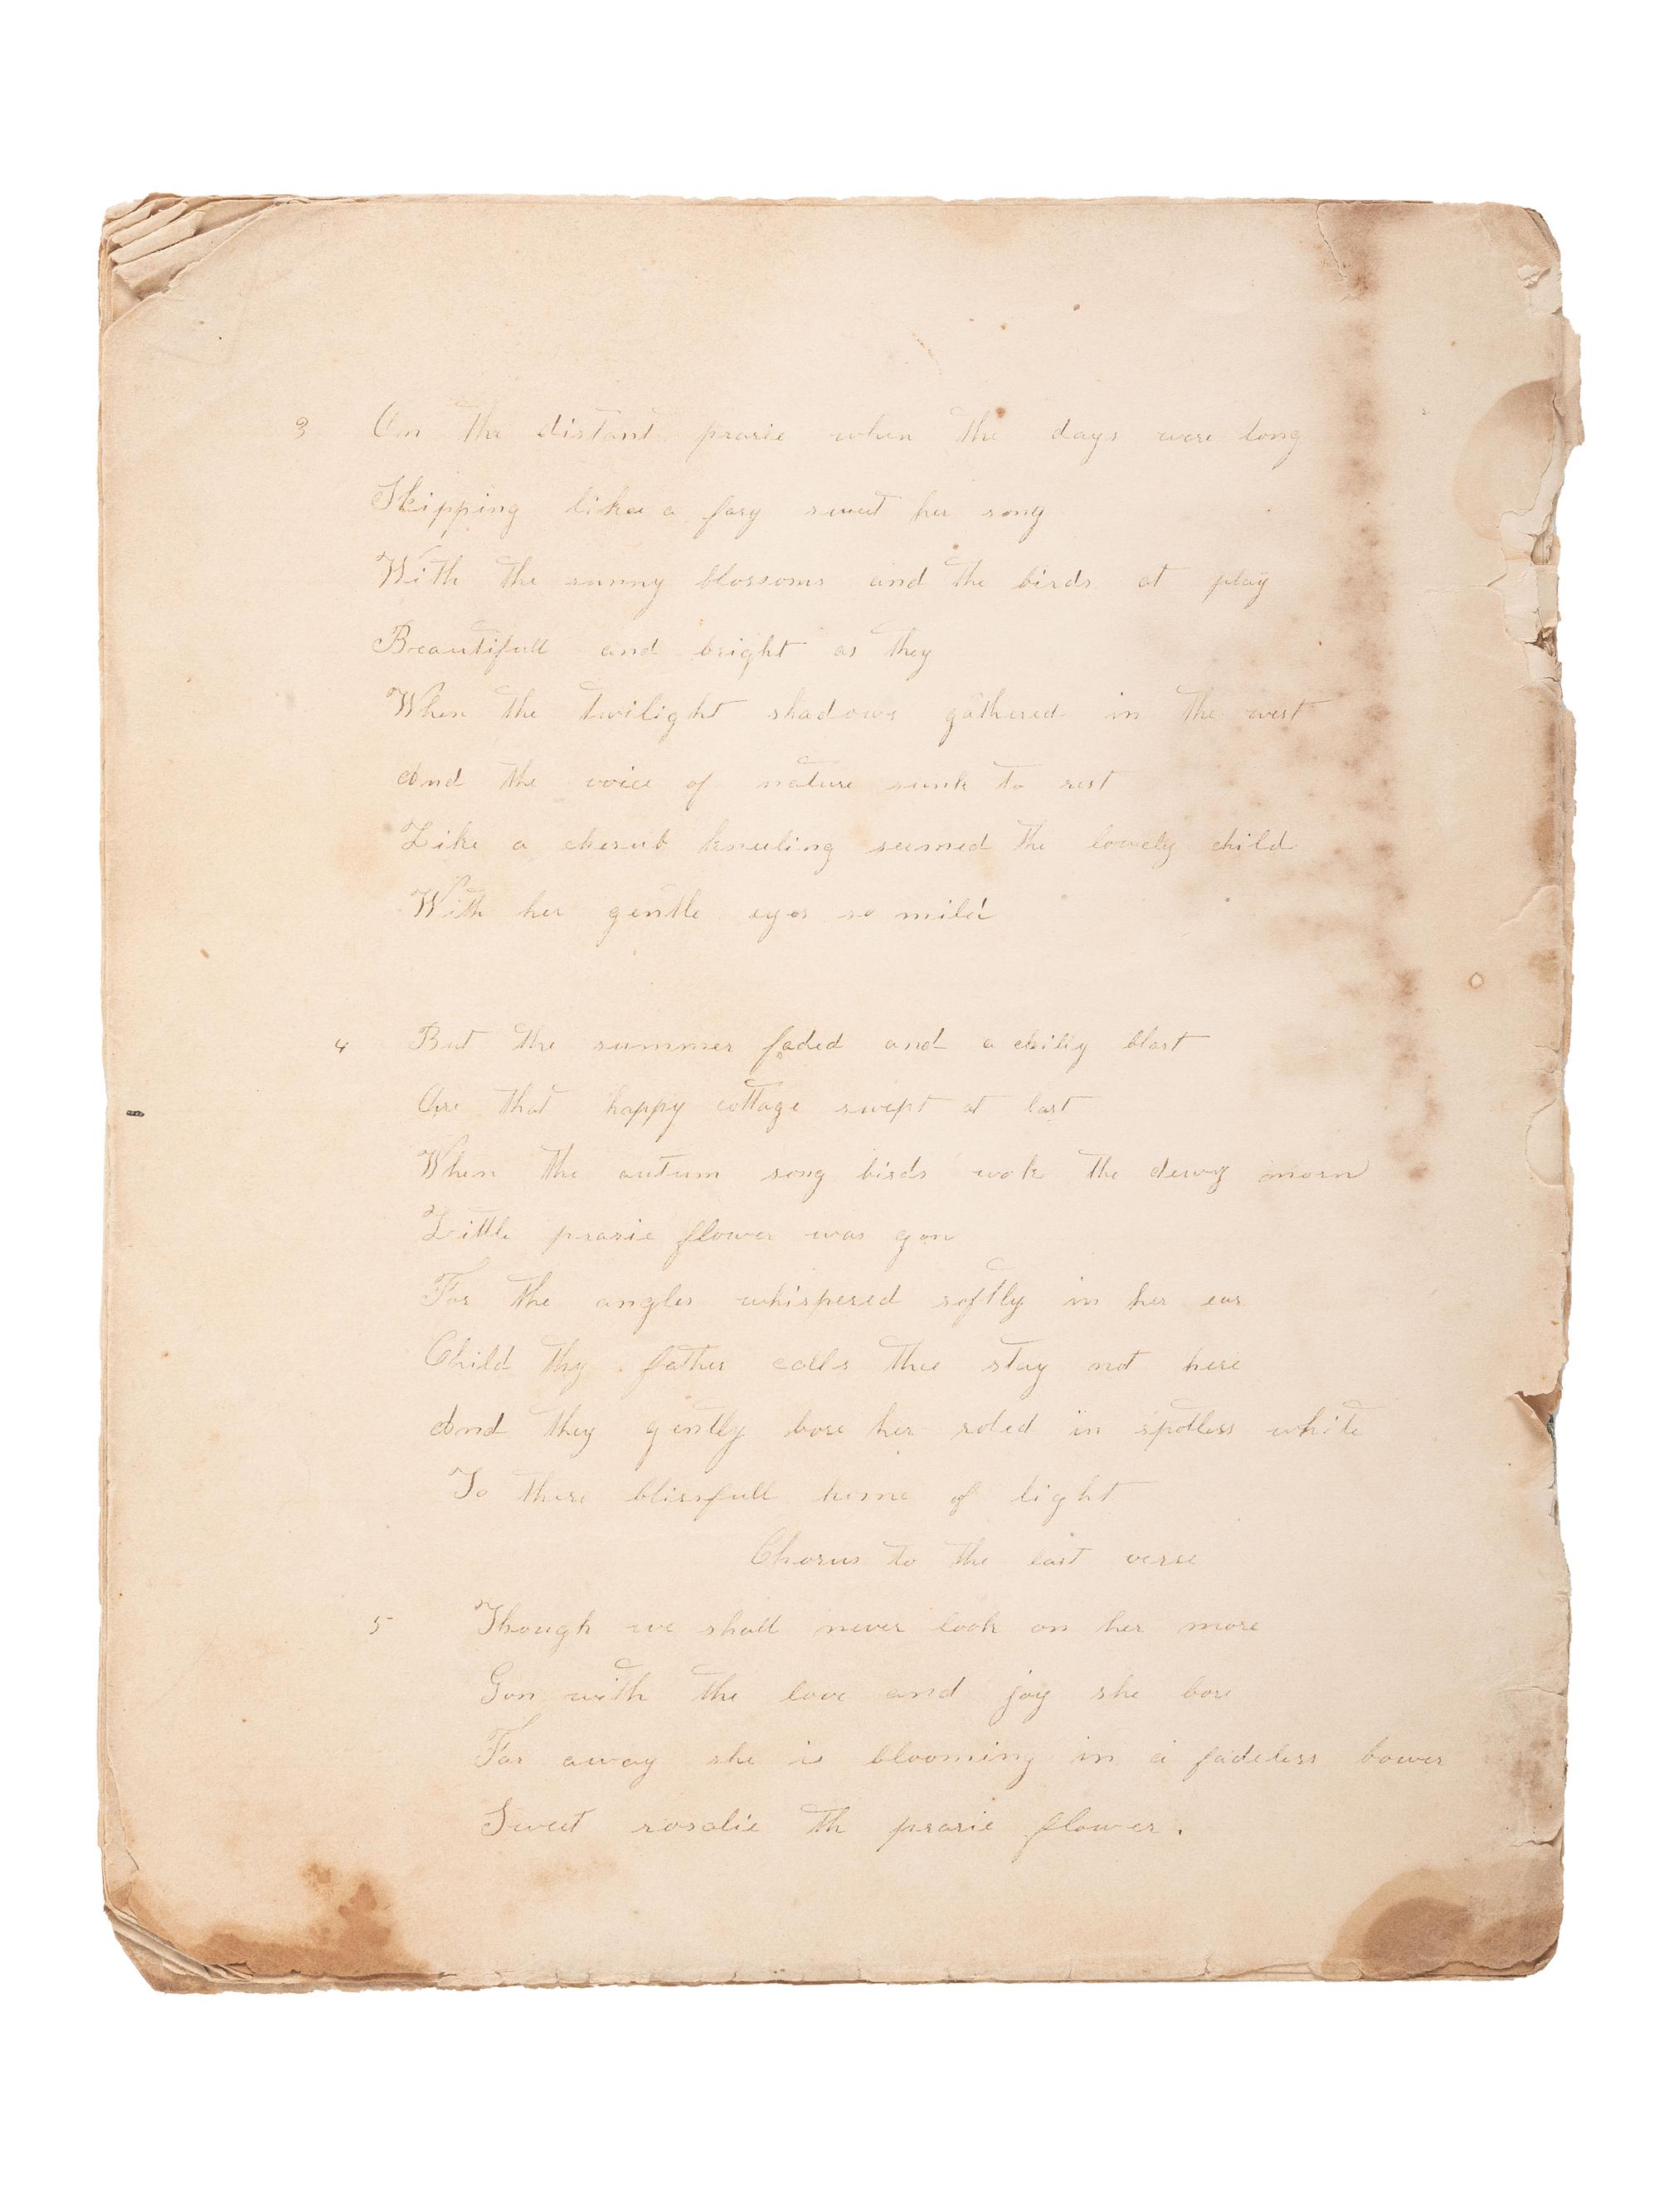 3 On the distant prarie when the days were long
Skipping like a fary sweet her song
With the sunny blossoms and the birds at play
Beautifull and bright as they
When the twilight shadows gathered in the west
And the voice of nature sunk to rest
Like a cherub kneeling seemed the lovely child
With her gentle eyes so mild
4 But the summer faded and a chilly blast
Ore that happy cottage swept at last
When the autum song birds wok the dewy morn
Little prarie flower was gon
For the angles whispered softly in her ear
Child thy father calls thee stay not here
And they gently bore her robed in spotless white
To there blissfull home of light
Chorus to the last verse
5 Though we shall never look on her more
Gon with the love and joy she bore
Far away she is blooming in a fadeless bower
Sweet rosalie th prarie flower.